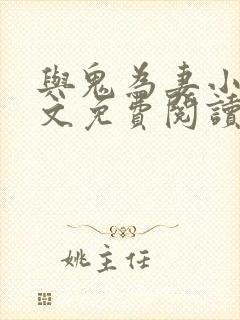 與鬼為妻小
文免費閱讀
姚主任